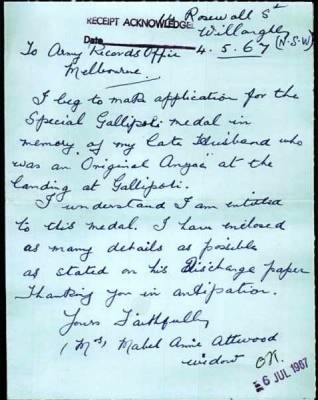 Rosewall St
RECEIPT ACKNOWLEDGE
Willoughby
Date
4.5.67 (N.S.W)
To Army Records Office
Melbourne.
I beg to make application for the
Special Gallipoli medal in
memory of my late Husband who
was an "Original Anzac" at the
landing at Gallipoli.
I understand I am entitled
to this medal. I have enclosed
as many details as possible
as stated on his Discharge paper
Thanking you in antipation.
Yours Faithfully
(Mrs) Mabel Annie Attwood
widow
6 JUL 1967